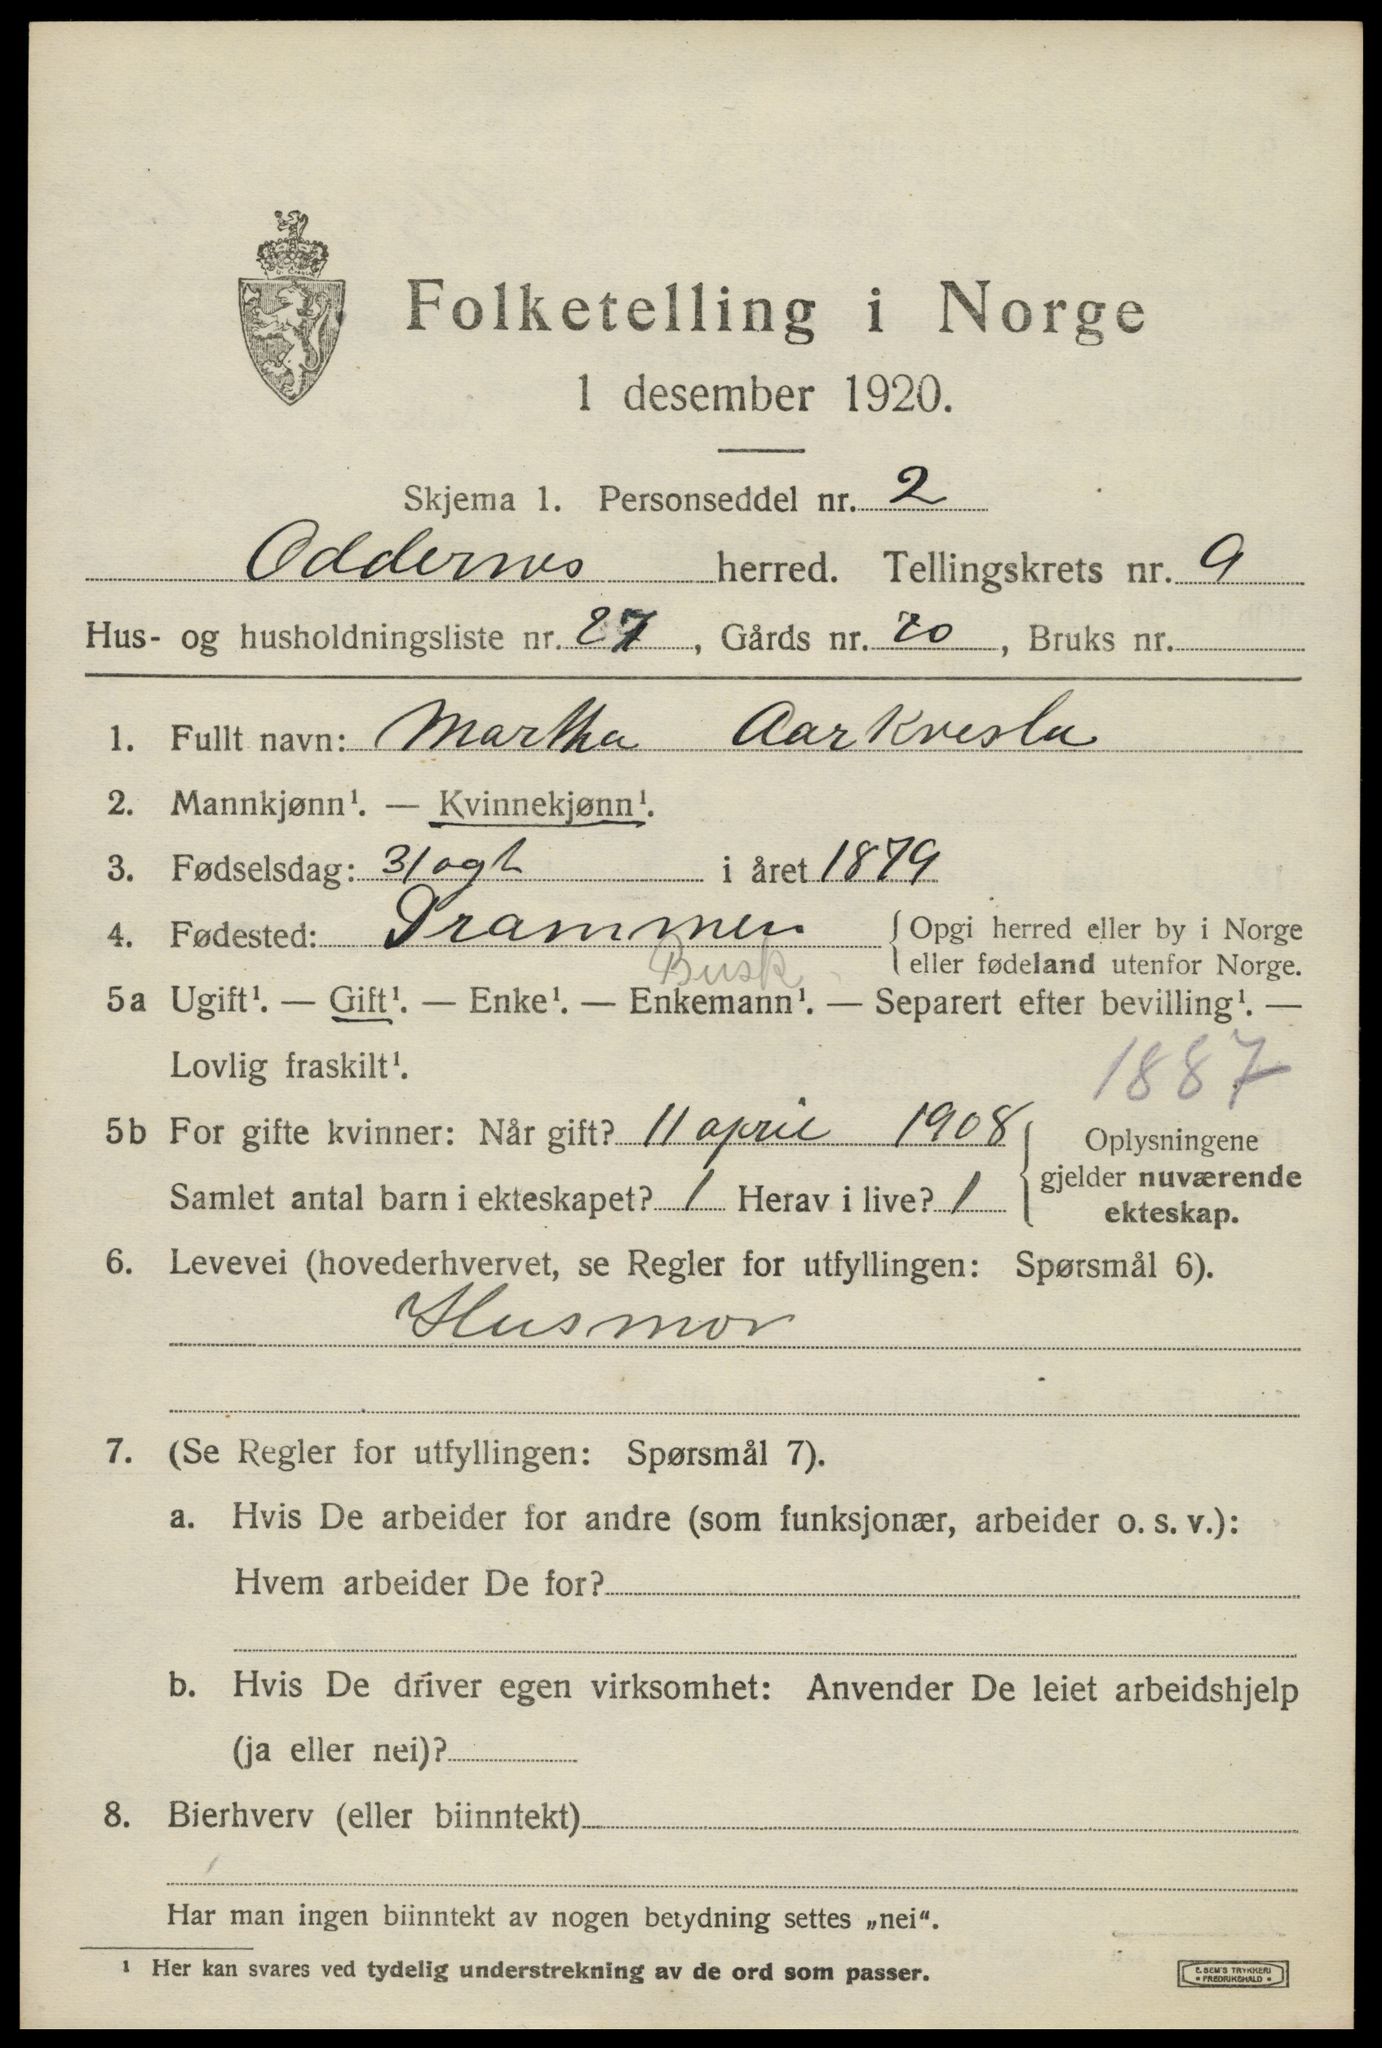 Folketelling i Norge
1 desember 1920.
Skjema 1. Personseddel nr. 2
Oddernes herred. Tellingskrets nr. 9
Hus- og husholdningsliste nr. 27, Gårds nr. 20, Bruks nr.
1. Fullt navn: Martha Aarkvesla
2. Mannkjønn¹. — Kvinnekjønn¹.
3. Fødselsdag: 31 ogt i året 1879
4. Fødested: Drammen { Opgi herred eller by i Norge
eller fødeland utenfor Norge.
Busk
5a Ugift¹. — Gift¹. — Enke¹. — Enkemann¹. — Separert efter bevilling¹. —
Lovlig fraskilt¹.
1887
5b For gifte kvinner: Når gift? 11 april 1908 { Oplysningene
gjelder nuværende
ekteskap.
Samlet antal barn i ekteskapet? 1 Herav i live? 1
6. Levevei (hovederhvervet, se Regler for utfyllingen: Spørsmål 6).
Husmor
7. (Se Regler for utfyllingen: Spørsmål 7).
a. Hvis De arbeider for andre (som funksjonær, arbeider o. s. v.):
Hvem arbeider De for?
b. Hvis De driver egen virksomhet: Anvender De leiet arbeidshjelp
(ja eller nei)?
8. Bierhverv (eller biinntekt)
Har man ingen biinntekt av nogen betydning settes „nei“.
¹ Her kan svares ved tydelig understrekning av de ord som passer.
E. SEM'S TRYKKERI
• FREDRIKSHALD •